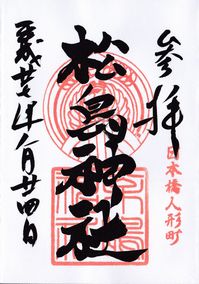 参拝
日本橋人形町
松島神社
平成廿七年八月廿四日